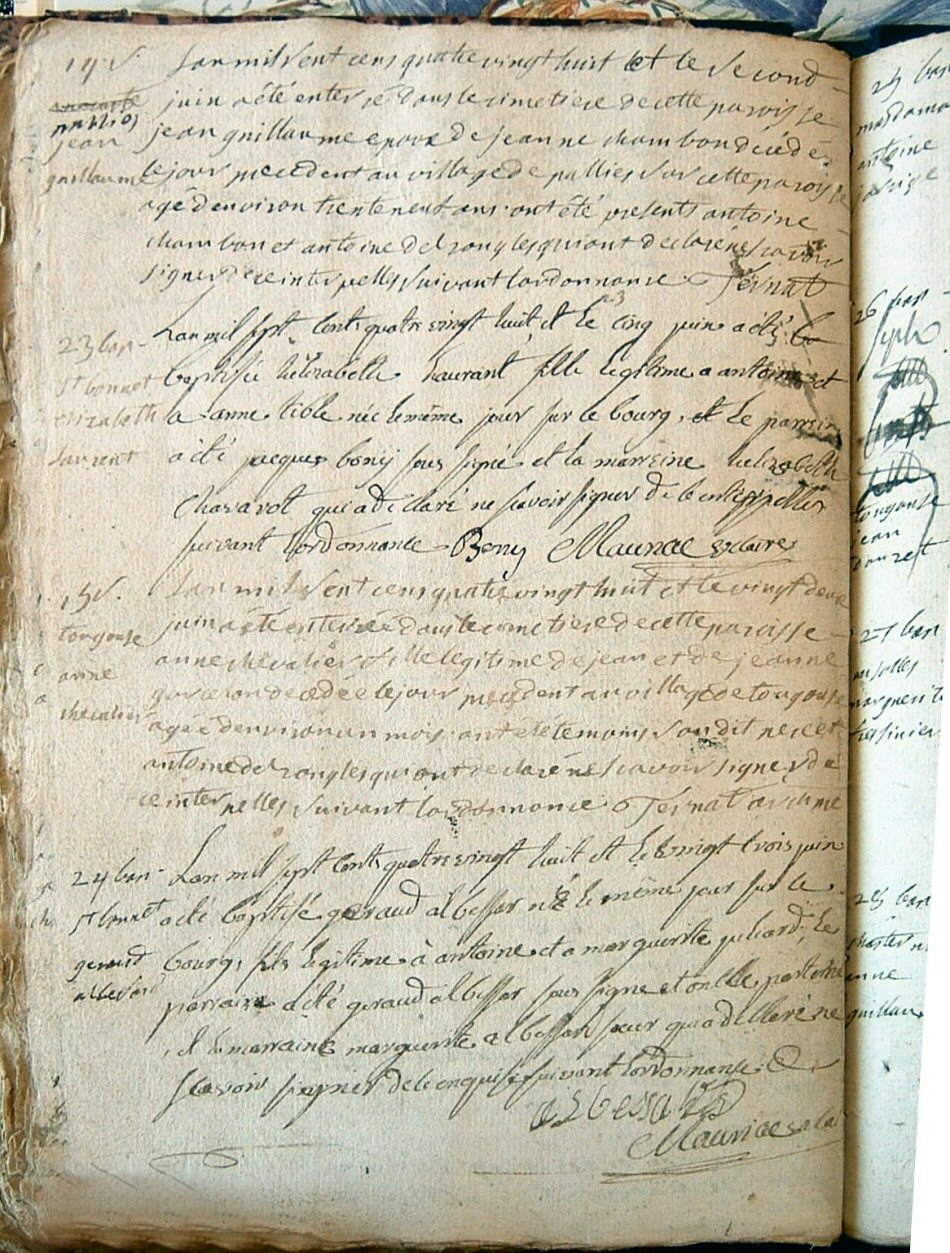 14 S.
pallios
jean
guillaume
Lan mil sent cens quatre vingt huit et le second
juin a été enterré dans le cimetiere de cette paroisse
jean guillaume epoux de jeanne chambon décédé
le jour precedent au village de pullies sur cette paroisse
agé d'environ trente neuf ans. ont été presents antoine
chambon et antoine delzongles qui ont declaré ne scavoir
signer de ce interpellés suivant lordonnance. Fernat
23 bap-
St bonnet
elizabeth
laurent
Lan mil sept cents quatre vingt huit et le cinq juin a été
baptisée helizabeth laurant fille legitime a antoine et
a anne tible née le même jour sur le bourg, et le parrein
a été jacques bony sous signé et la marreine helizabeth
Chavarot qui a declaré ne scavoir signer de ce enterpellés
suivant lordonnance Bony Mauriac vicaire
15 S.
tougouse
anne
chevalier
Lan mil sent cens quatre vingt huit et le vingt deux
juin a été enterrée dans le cimetiere de cette paroisse
anne chevalier fille legitime de jean et de jeanne
decedée le jour precedent au village de tougouse
agée denviron un mois. ont été temoins
antoine delzongles qui ont declaré ne scavoir signer de
ce interpelles suivant lordonnance Fernat
24 bap-
St bonnet
geraud
albessard
Lan mil sept cents quatre vingt huit et le vingt trois juin
a été baptisé geraud albessar né le même jour sur le
bourg, fils legitime à antoine et a marguerite juliard, Le
parrain a été geraud albessar sous signé et oncle paternel
et la marraine marguerite albessar sœur qui a declaré ne
scavoir signer de ce enquise suivant lordonnanse.
albessar
Mauriac
25 bap
antoine
26 bap
tougouse
jean
27 bap
28 bap
anne
guillau